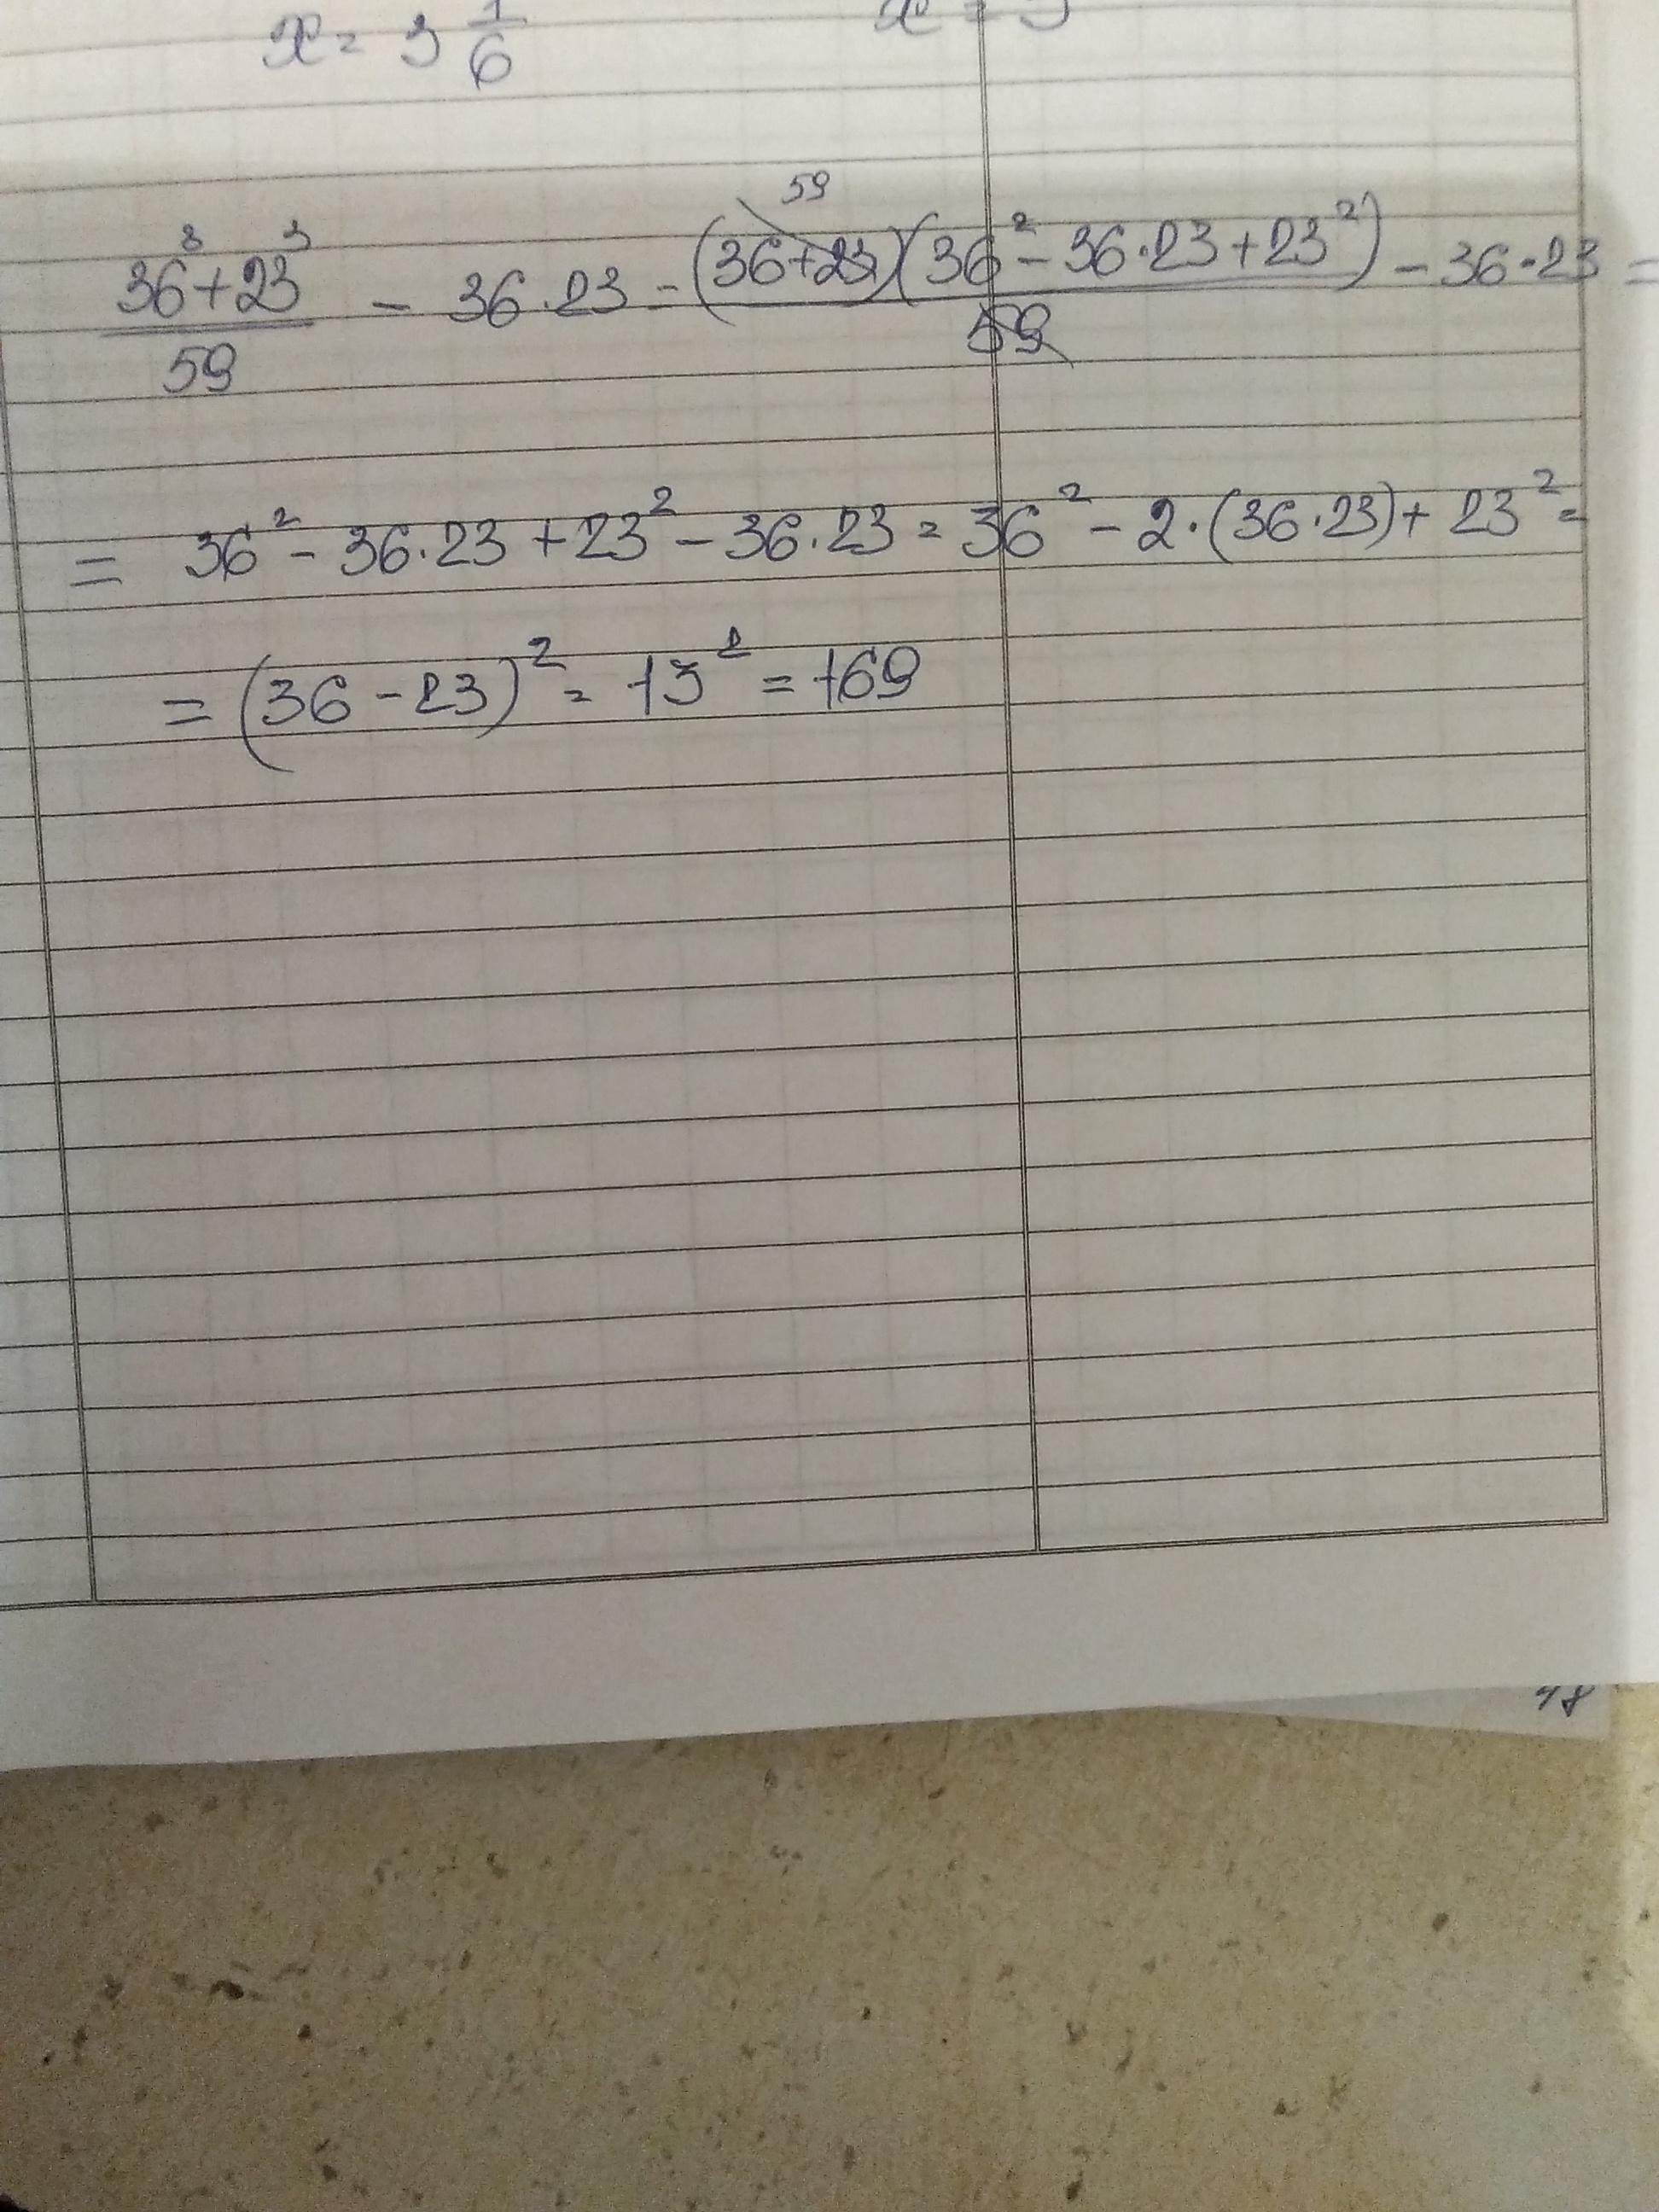 x = 3 1/6
x = 3
(36³+23³)/59 - 36·23 = (36+23)(36²-36·23+23²)/59 - 36·23 =
59
= 36² - 36·23 + 23² - 36·23 = 36² - 2·(36·23) + 23² =
= (36-23)² = 13² = 169
18